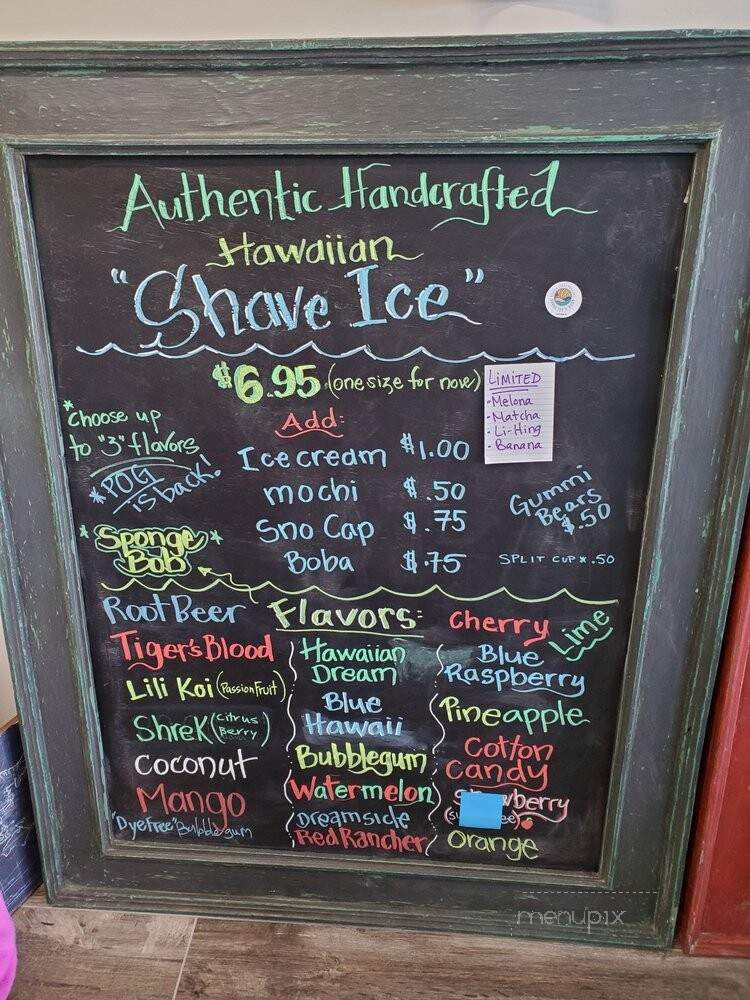 Authentic Handcrafted
Hawaiian
"Shave Ice"
$6.95 (one size for now)
LIMITED
-Melona
-Matcha
-Li-Hing
-Banana
*choose up
to "3" flavors
*POG
is back!
Add:
Ice cream $1.00
mochi $.50
Sno Cap $.75
Boba $.75
Gummi
Bears
$.50
SPLIT CUP * .50
*Sponge*
Bob
Flavors:
Root Beer
Tiger's Blood
Lili Koi (Passion Fruit)
Shrek (Citrus
Berry)
Coconut
Mango
"Dye Free" Bubblegum
Hawaiian
Dream
Blue
Hawaii
Bubblegum
Watermelon
Dreamsicle
Red Rancher
Cherry
Lime
Blue
Raspberry
Pineapple
Cotton
Candy
Orange
menupix